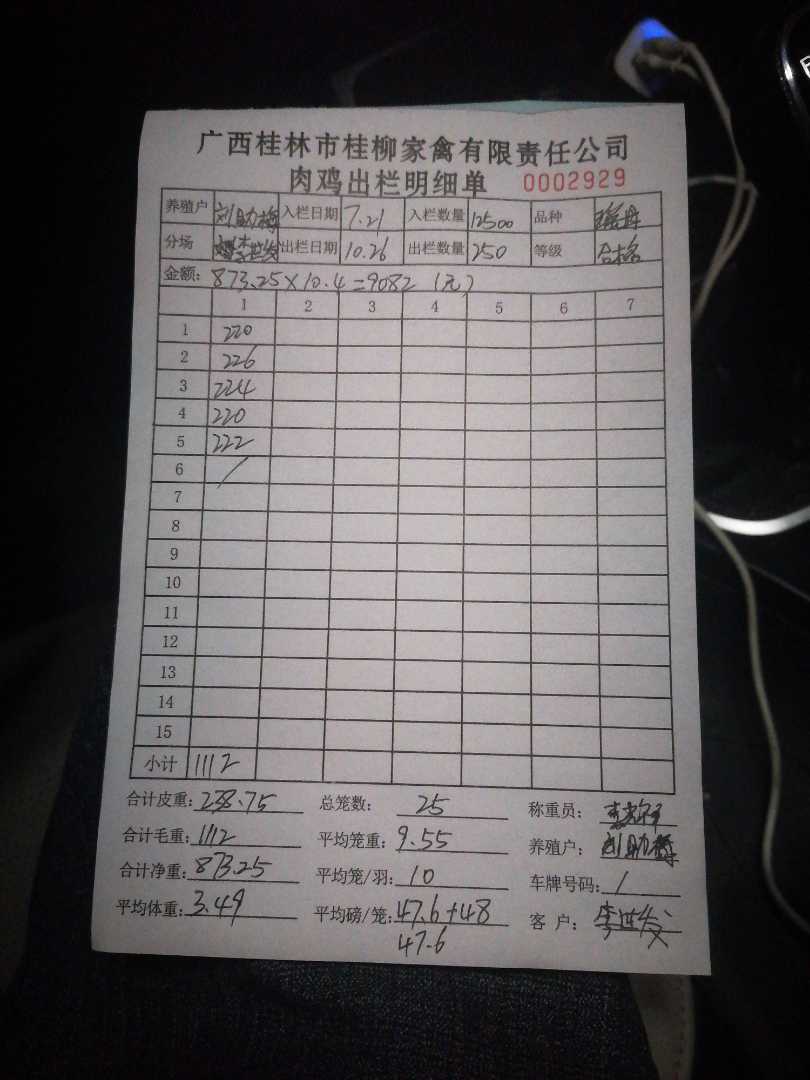 广西桂林市桂柳家禽有限责任公司
肉鸡出栏明细单 0002929
养殖户 刘助梅 入栏日期 7.21 入栏数量 12500 品种
分场 出栏日期 10.26 出栏数量 250 等级 合格
金额: 873.25×10.4=9082(元)
1 2 3 4 5 6 7
1 220
2 226
3 224
4 220
5 222
6 /
7
8
9
10
11
12
13
14
15
小计 1112
合计皮重: 238.75 总笼数: 25 称重员:
合计毛重: 1112 平均笼重: 9.55 养殖户: 刘助梅
合计净重: 873.25 平均笼/羽: 10 车牌号码: /
平均体重: 3.49 平均磅/笼: 47.6+48 客户: 李世发
47.6